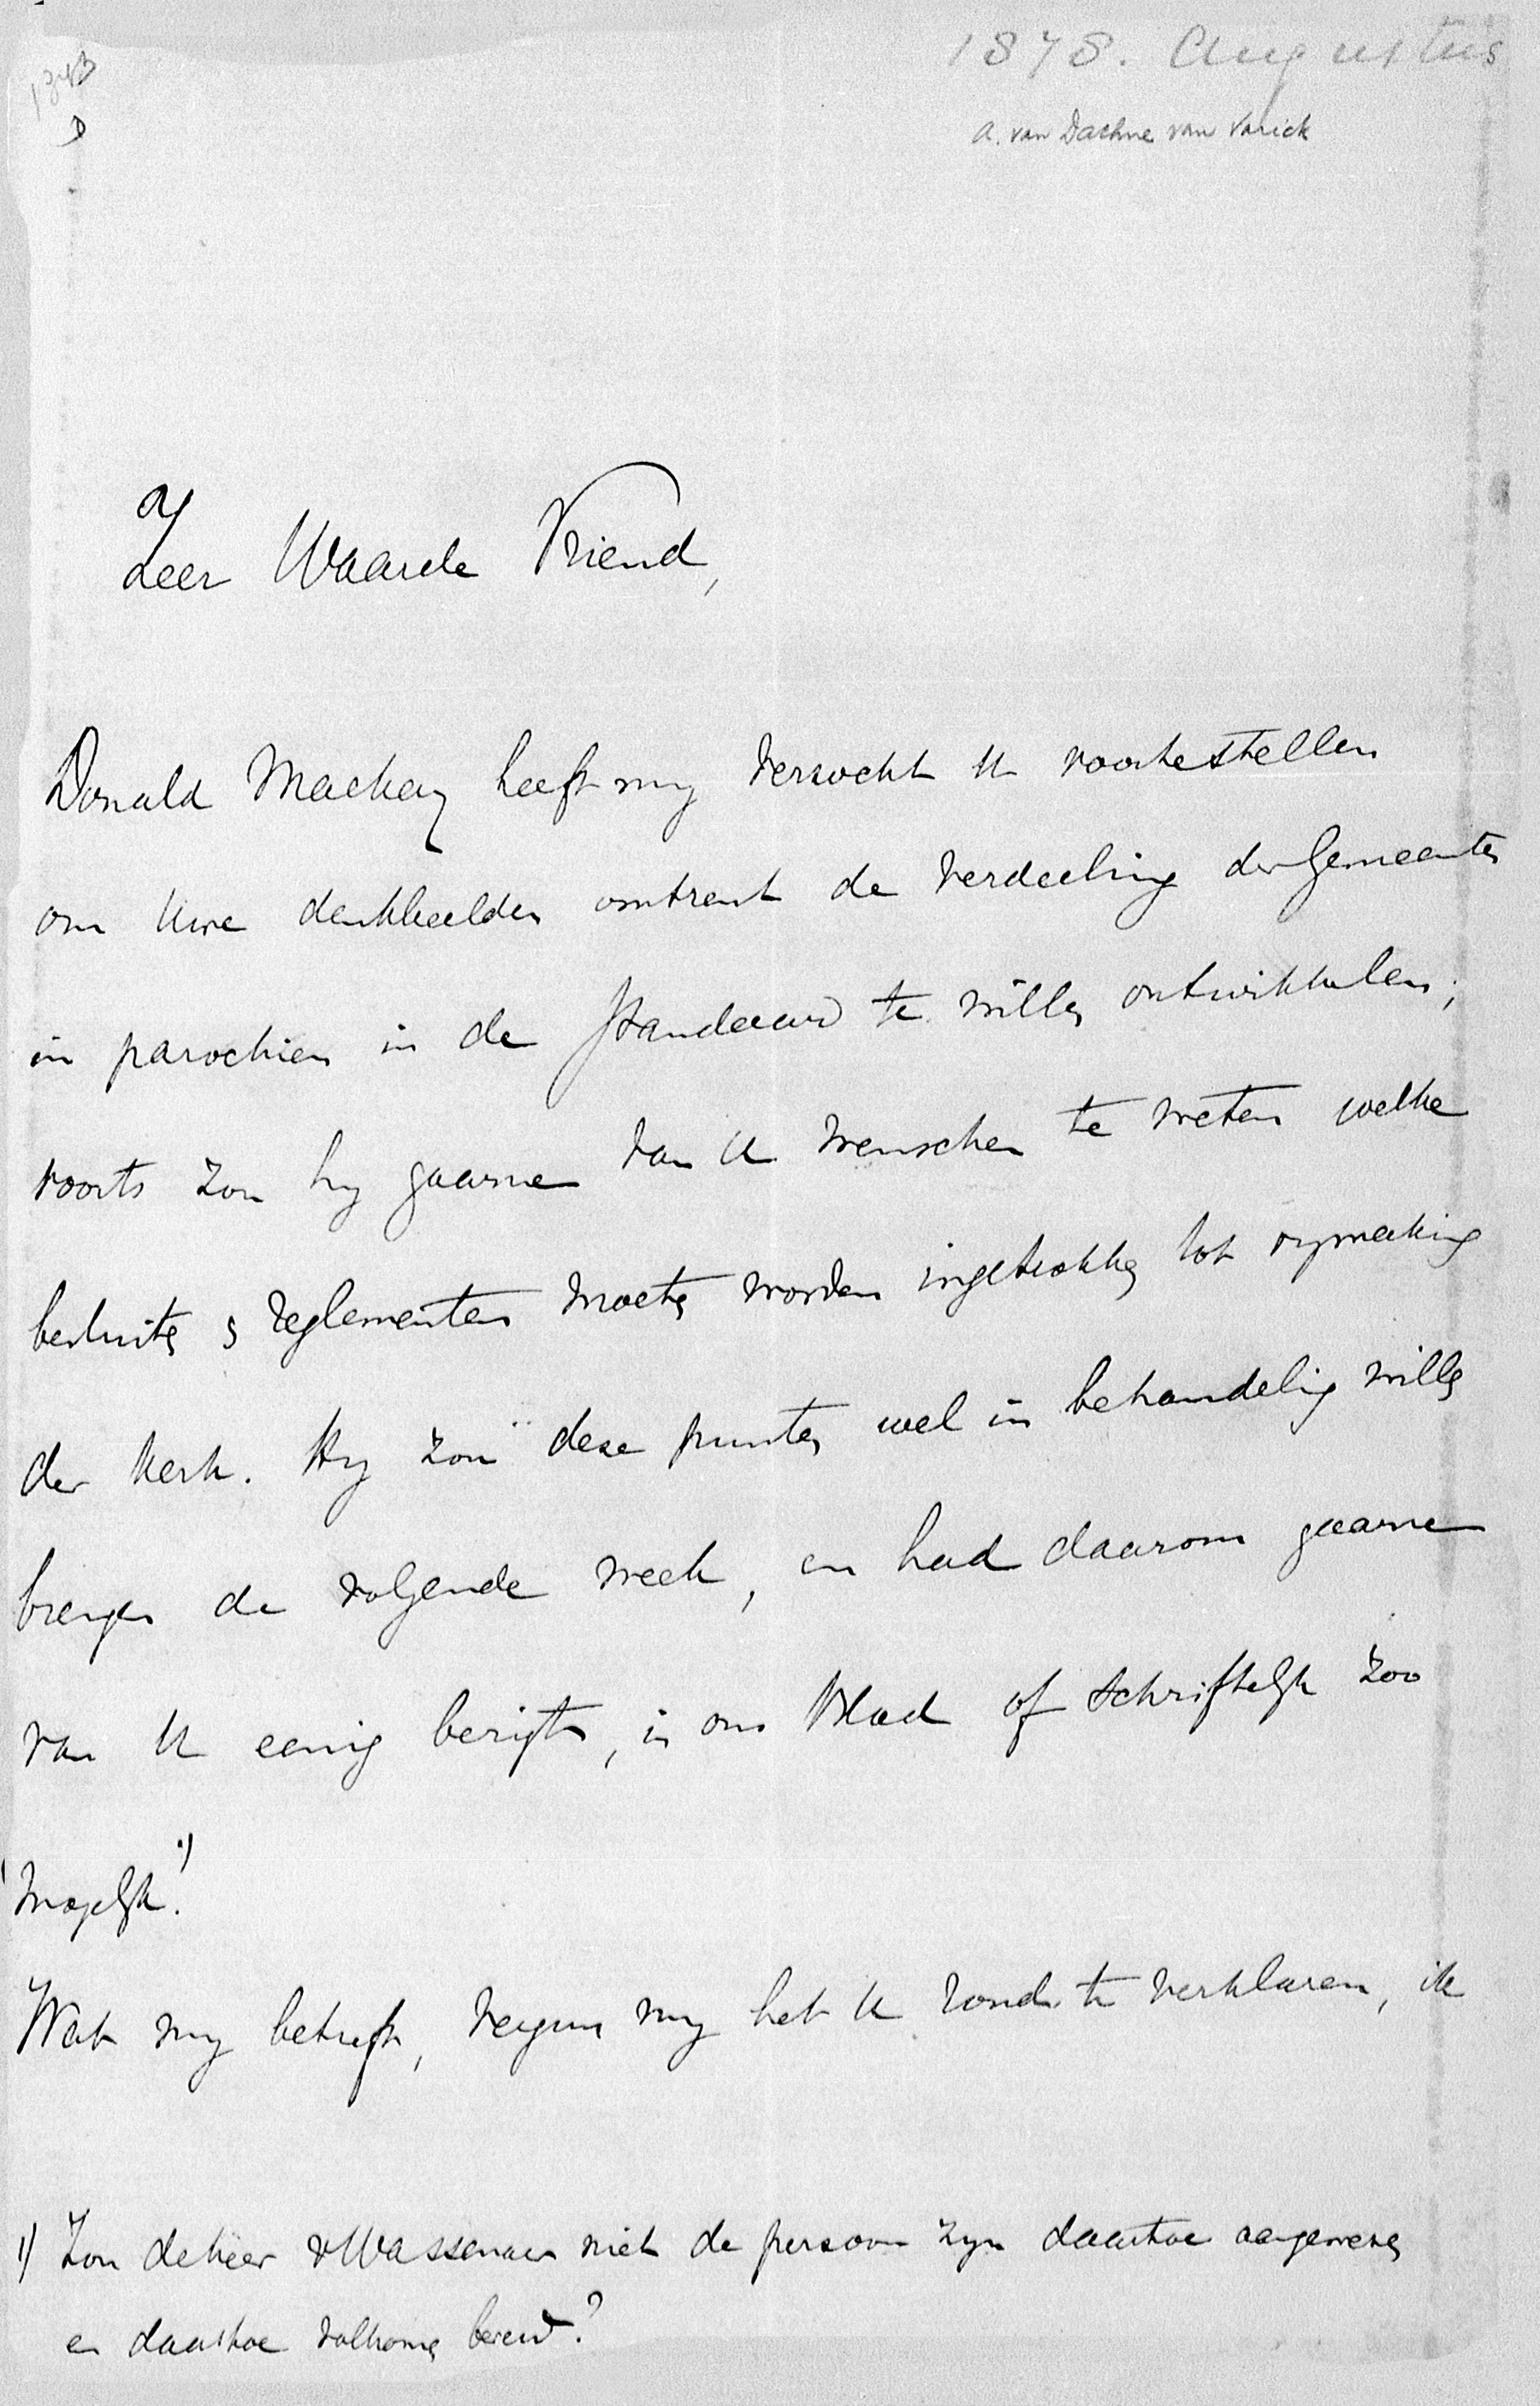 1878. Augustus
a. van Daehne van Varick
Zeer Waarde Vriend,
Donald Mackay heeft my versocht U voortestellen
om Uwe denkbeelden omtrent de verdeeling der Gemeenten
in parochien in de Standaard te willen ontwikkelen;
voorts zou hy gaarne van U wenschen te weten welke
besluiten & reglementen moeten worden ingetrokken tot vrymaking
der Kerk. Hy zou deze punten wel in behandeling willen
brengen de volgende week, en had daarom gaarne
van U eenig berigt, in ons Blad of schriftelyk zoo
mogelyk. 1)
Wat my betreft, vergun my het U rond te verklaren, ik
1) Zou de heer v Wassenaer niet de persoon zyn daartoe aangewezen
en daartoe volkomen bereid?